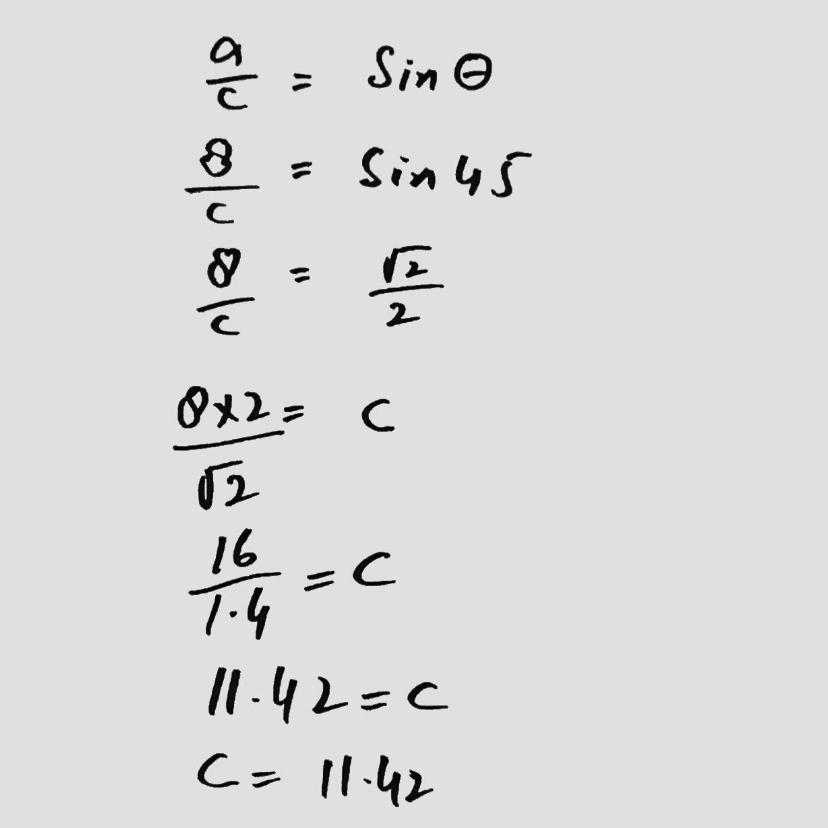 a/c = Sin θ
8/c = Sin 45
8/c = √2/2
8×2/√2 = C
16/1.4 = C
11.42 = C
C = 11.42